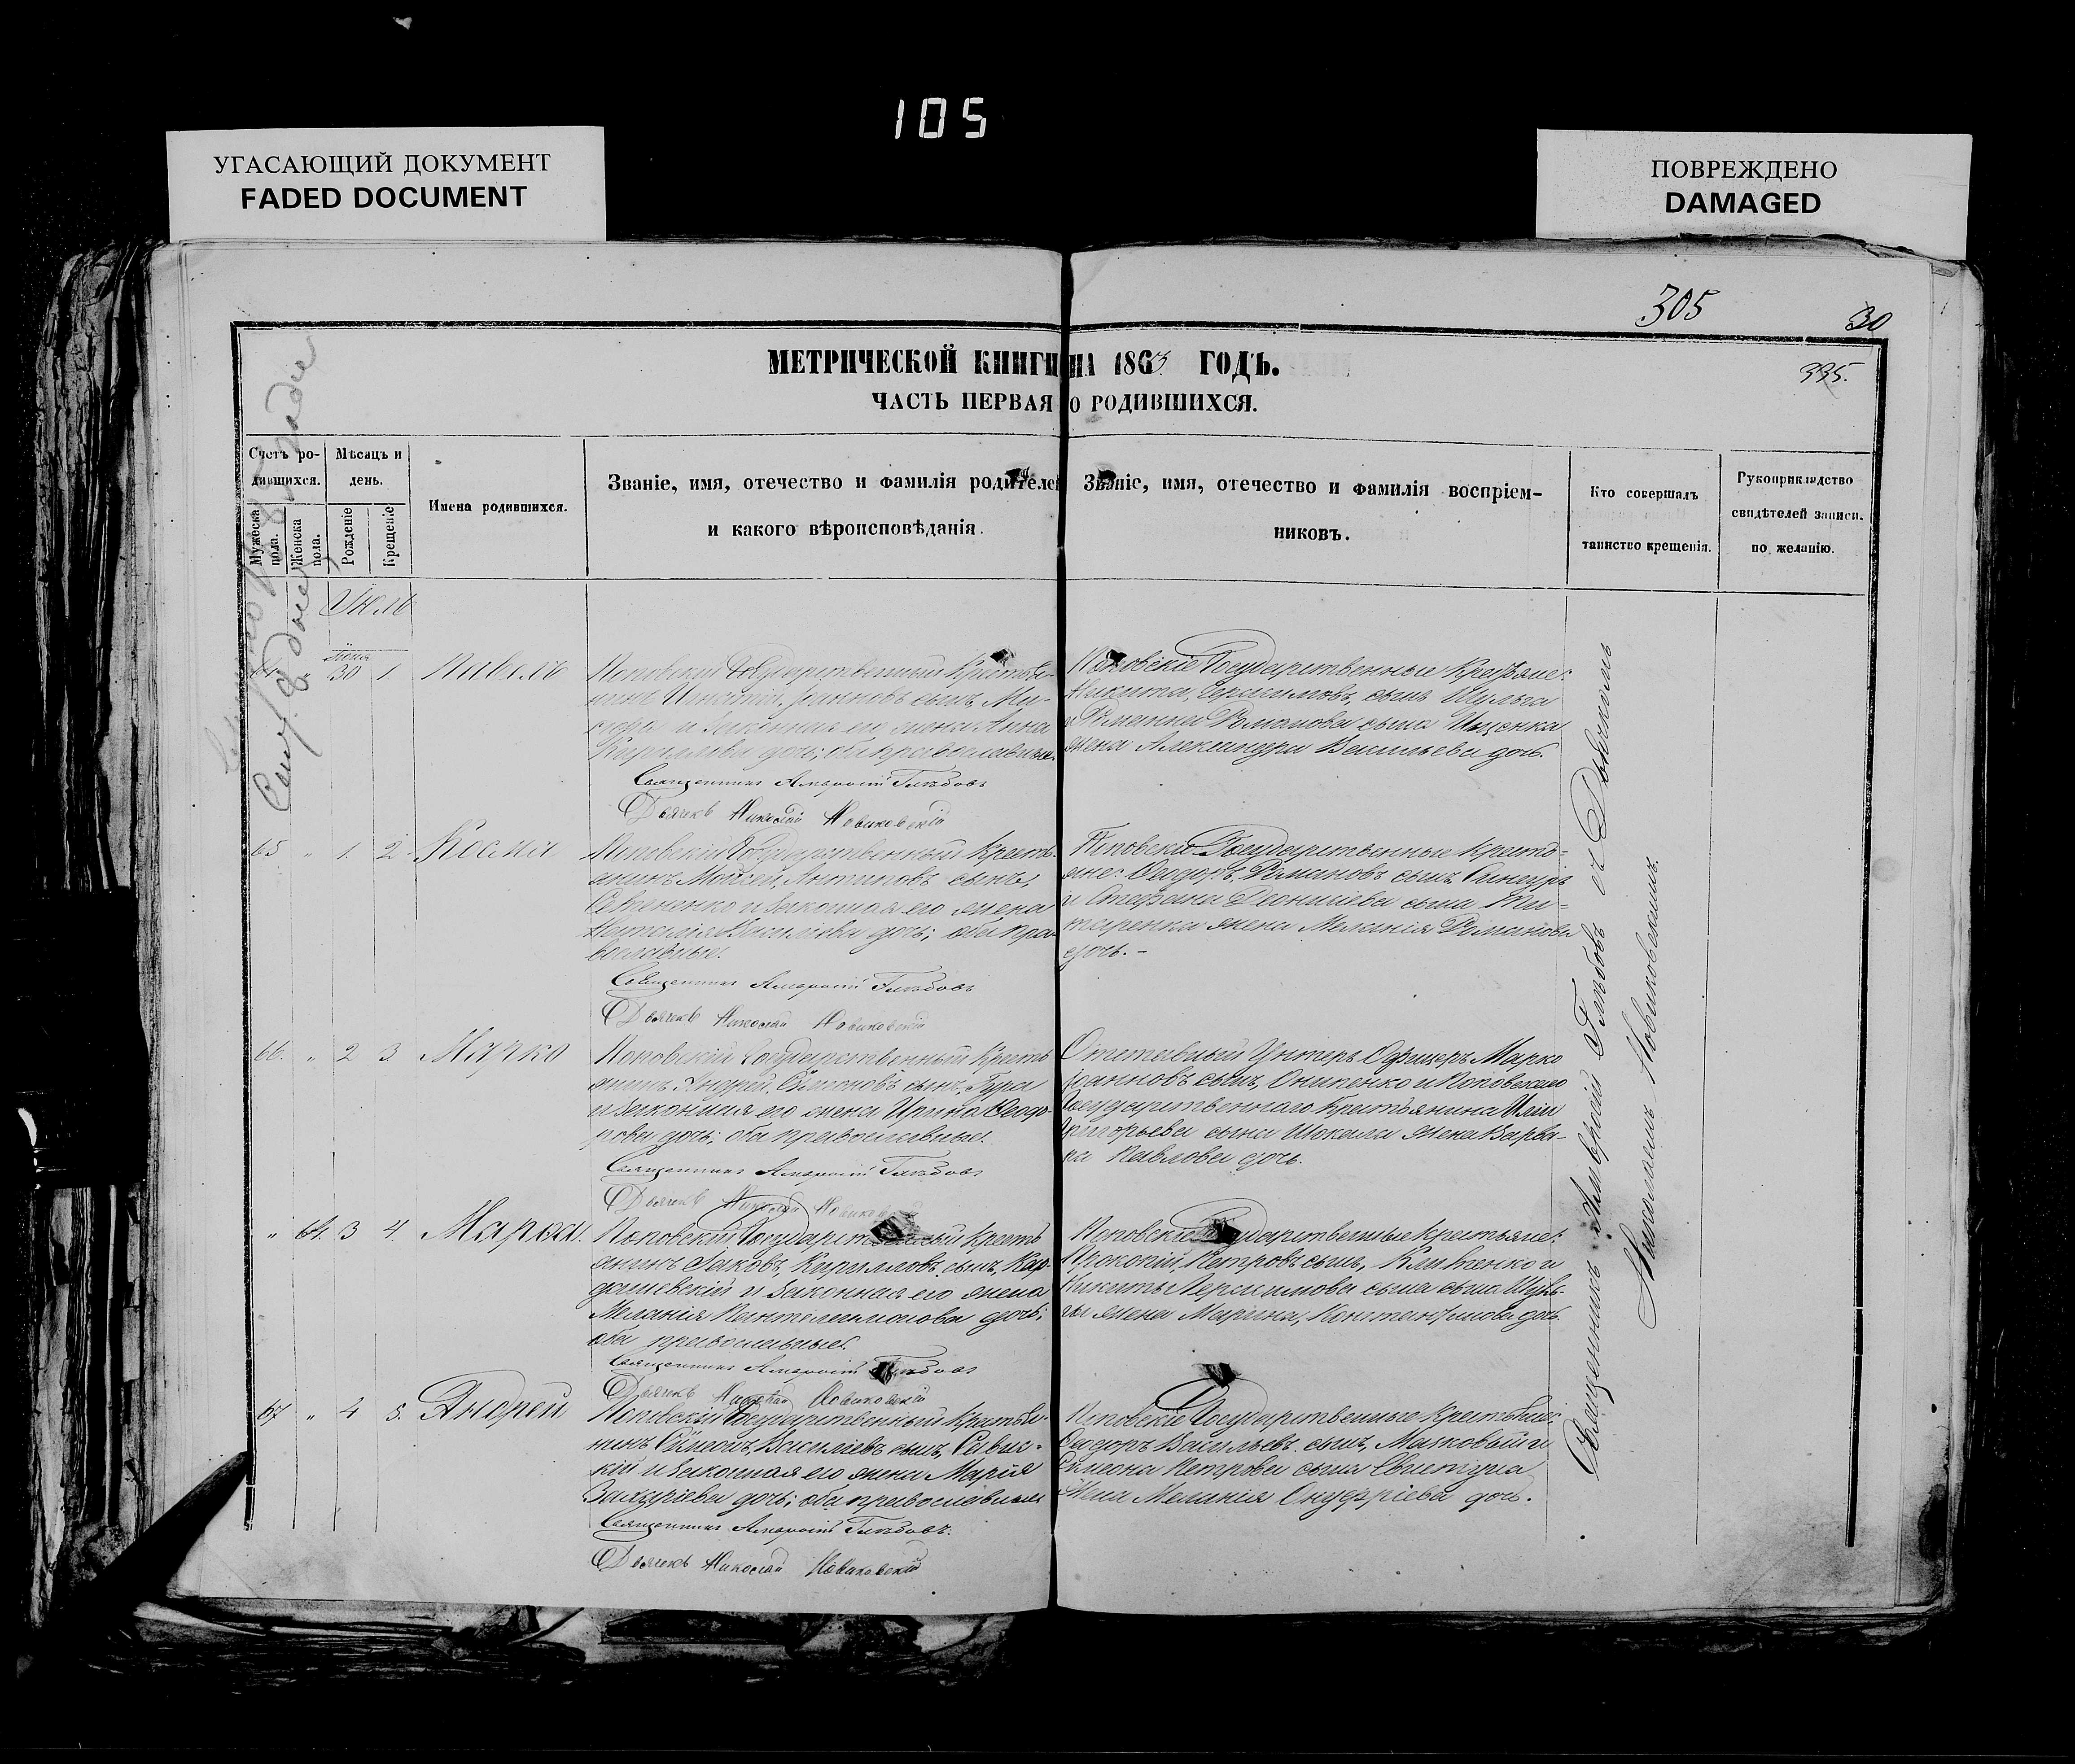 105
УГАСАЮЩИЙ ДОКУМЕНТ
FADED DOCUMENT
ПОВРЕЖДЕНО
DAMAGED
305
30
335.
МЕТРИЧЕСКОЙ КНИГИ НА 1863 ГОДЪ.
ЧАСТЬ ПЕРВАЯ О РОДИВШИХСЯ.
Счетъ ро-
дившихся.
Мужеска
пола.
Женска
пола.
Мѣсяцъ и
день.
Рожденіе
Крещеніе
Имена родившихся.
Званіе, имя, отечество и фамилія родителей
и какого вѣроисповѣданія.
Званіе, имя, отечество и фамилія воспріем-
никовъ.
Кто совершалъ
таинство крещенія.
Рукоприкладство
свидѣтелей записи.
по желанію.
Июль
64 " 30 1 Павелъ
Поповскій Государственный Крестья-
нинъ Игнатій сынъ
и законная его жена Анна
Кириллова дочь; оба православные.
Священникъ Амвросій Глѣбовъ
Дьячекъ Николай Новиковскій
Поповскіе Государственные Крестьяне:
Никита Герасимовъ сынъ Шульга
и Романова сына Ищенка
жена Александра Васильева дочь.
65 " 1. 2 Косма
Поповскій Государственный Кресть-
янинъ Моисей Антиповъ сынъ,
и законная его жена
Наталія дочь; оба пра-
вославные.
Священникъ Амвросій Глѣбовъ
Дьячекъ Николай Новиковскій
Поповскіе Государственные Кресть-
яне: Ѳеодоръ Романовъ сынъ
и Стефана Діонисіева сына Ти-
таренка жена Меланія Романова
дочь. -
66. " 2 3 Марко
Поповскій Государственный Кресть
янинъ Андрей Симоновъ сынъ Гура
и законная его жена Ирина Ѳеодо-
рова дочь; оба православные.
Священникъ Амвросій Глѣбовъ
Дьячекъ Николай Новиковскій
Отставный Унтеръ Офицеръ Марко
Іоанновъ сынъ, Онипенко и Поповскаго
Государственнаго Крестьянина Иліи
Григорьева сына Шокала жена Варва-
ра Павлова дочь.
" 64. 3 4. Марѳа.
Поповскій Государственный Кресть
янинъ Іаковъ Кирилловъ сынъ, Кар-
дашевскій и законная его жена
Меланія Пантелеимонова дочь;
оба православные.
Священникъ Амвросій Глѣбовъ
Дьячекъ Николай Новиковскій
Поповскіе Государственные Крестьяне:
Прокопій Петровъ сынъ, Клименко и
Никиты Герасимова сына сына Шуль-
ги жена Марина, Константинова дочь.
67 " 4 5. Андрей
Поповскій Государственный Крестья-
нинъ Симеонъ Василіевъ сынъ, Савис-
кій и законная его жена Марія
Захаріева дочь; оба православные
Священникъ Амвросій Глѣбовъ.
Дьячекъ Николай Новиковскій
Поповскіе Государственные Крестьяне:
Ѳеодоръ Васильевъ сынъ, Маковый и
Симеона Петрова сына
жена Меланія Онуфріева дочь.
Священникъ Амвросій Глѣбовъ съ Дьячкомъ
Николаемъ Новиковскимъ.